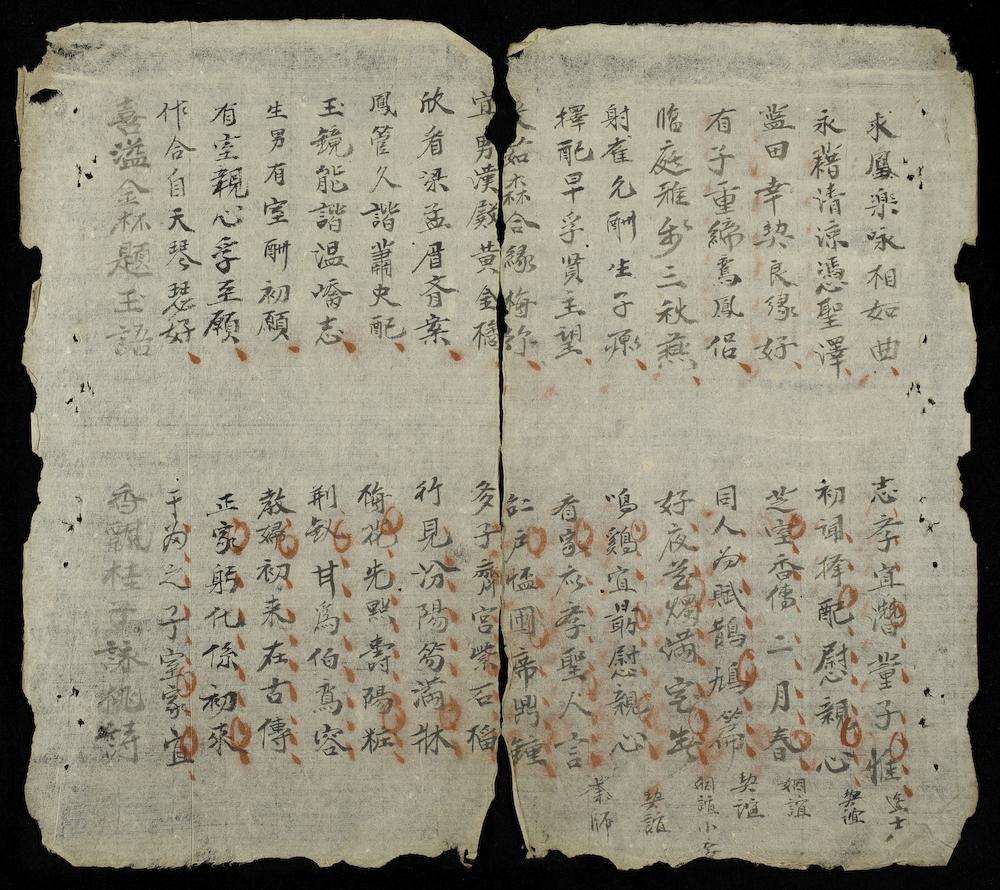 求鳳樂咏相如曲
志孝宜潛董子惟
永藉清凉憑聖澤
初調擇配慰親心
契誼
藍田幸契良緣好
芝室香傳二月春
姻誼
有子重締鸞鳳侶
同人为賦鵲鳩篇
契誼
臨庭雅步三秋燕
好夜花爛滿宅
姻誼小
射雀允酬生子願
鳴鷄宜勗慰親心
契誼
擇配早孚賢主望
有家應孝聖人言
業師
茹森合緣梅
戶 席 鐘
宜男漢殿黃金穗
多子齊宮紫石榴
欣看梁孟眉齊案
行見汾陽笏滿牀
鳳管久諧蕭史配
梅花先點壽陽粧
玉鏡能諧温嶠志
荆釵甘為伯鸞容
生男有室酬初願
教婦初来在古傳
有室親心孚至願
正家躬化係初來
作合自天琴瑟好
于为之子室家宜
喜溢金杯題玉語
香飄桂子詠桃詩